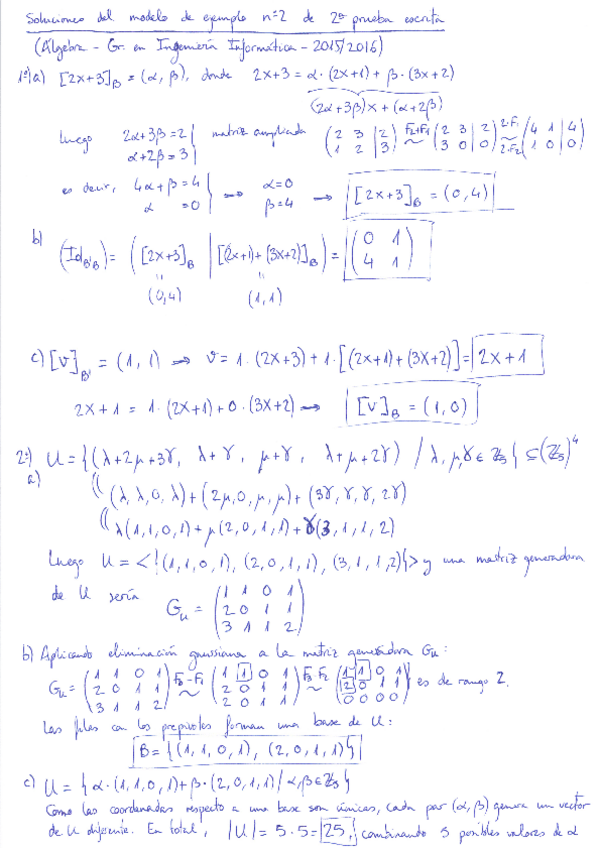 Soluciones del modelo de ejemplo nº2 de 2ª prueba escrita
(Álgebra - Gr. en Ingeniería Informática - 2015/2016)
1º) a) [2x+3]_B = (α, β), donde 2x+3 = α·(2x+1) + β·(3x+2)
(2α+3β)x + (α+2β)
luego 2α+3β=2 | matriz ampliada (2 3 | 2) F2+F1 (2 3 | 2) 2·F1 (4 1 | 4)
α+2β=3 | (1 2 | 3) ~ (3 0 | 0) 2·F2 (1 0 | 0)
es decir, 4α+β=4 | → α=0 → [2x+3]_B = (0,4)
α =0 | β=4
b) (Id_B'B) = ([2x+3]_B | [(2x+1)+(3x+2)]_B) = (0 1)
(4 1)
(0,4) (1,1)
c) [v]_B' = (1,1) → v = 1·(2x+3) + 1·[(2x+1)+(3x+2)] = 2x+1
2x+1 = 1·(2x+1) + 0·(3x+2) → [v]_B = (1,0)
2º) U = {(λ+2μ+3γ, λ+γ, μ+γ, λ+μ+2γ) / λ, μ, γ ∈ ℤ5} ⊆ (ℤ5)^4
a) (λ, λ, 0, λ) + (2μ, 0, μ, μ) + (3γ, γ, γ, 2γ)
λ(1,1,0,1) + μ(2,0,1,1) + γ(3,1,1,2)
luego U = <{(1,1,0,1), (2,0,1,1), (3,1,1,2)}> y una matriz generadora
de U sería G_U = (1 1 0 1)
(2 0 1 1)
(3 1 1 2)
b) Aplicando eliminación gaussiana a la matriz generadora G_U:
G_U = (1 1 0 1) F3-F1 (1 1 0 1) F3-F2 (1 1 0 1) es de rango 2.
(2 0 1 1) ~ (2 0 1 1) ~ (2 0 1 1)
(3 1 1 2) (2 0 1 1) (0 0 0 0)
Las filas con los prepivotes forman una base de U:
B = {(1,1,0,1), (2,0,1,1)}
c) U = {α·(1,1,0,1) + β·(2,0,1,1) / α, β ∈ ℤ5}
Como las coordenadas respecto a una base son únicas, cada par (α,β) genera un vector
de U diferente. En total, |U| = 5·5 = 25, combinando 5 posibles valores de α